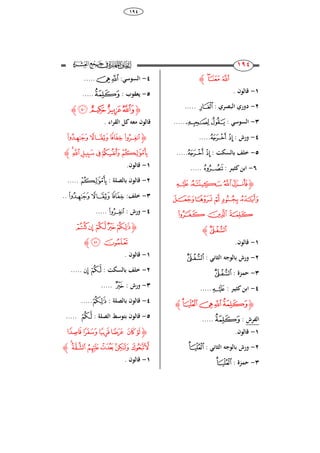 ١٩٤
١٩٤
﴿ مَعَنَا ﴾
١- قالون .
٢- دوري البصري : ٱلْغَارِ .....
٣- السوسي : يَقُولُ لِصَٰحِبِهِۦ .....
٤- ورش : إِذْ أَخْرَجَهُ .....
٥- خلف بالسكت : إِذْ أَخْرَجَهُ .....
٦- ابن كثير : تَنصُرُوهُ .....
﴿ فَأَنزَلَ ٱللَّهُ سَكِينَتَهُۥ عَلَيْهِ وَأَيَّدَهُۥ بِجُنُودٍ لَّمْ تَرَوْهَا وَجَعَلَ كَلِمَةَ ٱلَّذِينَ كَفَرُوا۟ ٱلسُّفْلَىٰ ﴾
١- قالون.
٢- ورش بالوجه الثاني : ٱلسُّفْلَىٰ .
٣- حمزة : ٱلسُّفْلَىٰ .
٤- ابن كثير : عَلَيْهِ .....
﴿ وَكَلِمَةُ ٱللَّهِ هِىَ ٱلْعُلْيَا ﴾
الفرش : وَكَلِمَةُ .....
١- قالون.
٢- ورش بالوجه الثاني : ٱلْعُلْيَا .
٣- حمزة : ٱلْعُلْيَا .
٤- السوسي: ٱللَّهِ هِىَ .....
٥- يعقوب : وَكَلِمَةَ .....
﴿ وَٱللَّهُ عَزِيزٌ حَكِيمٌ ٤٠ ﴾
قالون معه كل القراء .
﴿ ٱنفِرُوا۟ خِفَافًا وَثِقَالًا وَجَٰهِدُوا۟ بِأَمْوَٰلِكُمْ وَأَنفُسِكُمْ فِى سَبِيلِ ٱللَّهِ ﴾
١- قالون.
٢- قالون بالصلة : بِأَمْوَٰلِكُمْ .....
٣- خلف: خِفَافًا وَثِقَالًا وَجَٰهِدُوا۟ ..
٤- ورش : ٱنفِرُوا۟ .....
﴿ ذَٰلِكُمْ خَيْرٌ لَّكُمْ إِن كُنتُمْ تَعْلَمُونَ ٤١ ﴾
١- قالون .
٢- خلف بالسكت : لَّكُمْ إِن .....
٣- ورش : خَيْرٌ .....
٤- قالون بالصلة : ذَٰلِكُمْ .....
٥- قالون بتوسط الصلة : لَّكُمْ .....
﴿ لَوْ كَانَ عَرَضًا قَرِيبًا وَسَفَرًا قَاصِدًا لَّٱتَّبَعُوكَ وَلَٰكِنۢ بَعُدَتْ عَلَيْهِمُ ٱلشُّقَّةُ ﴾
١- قالون .